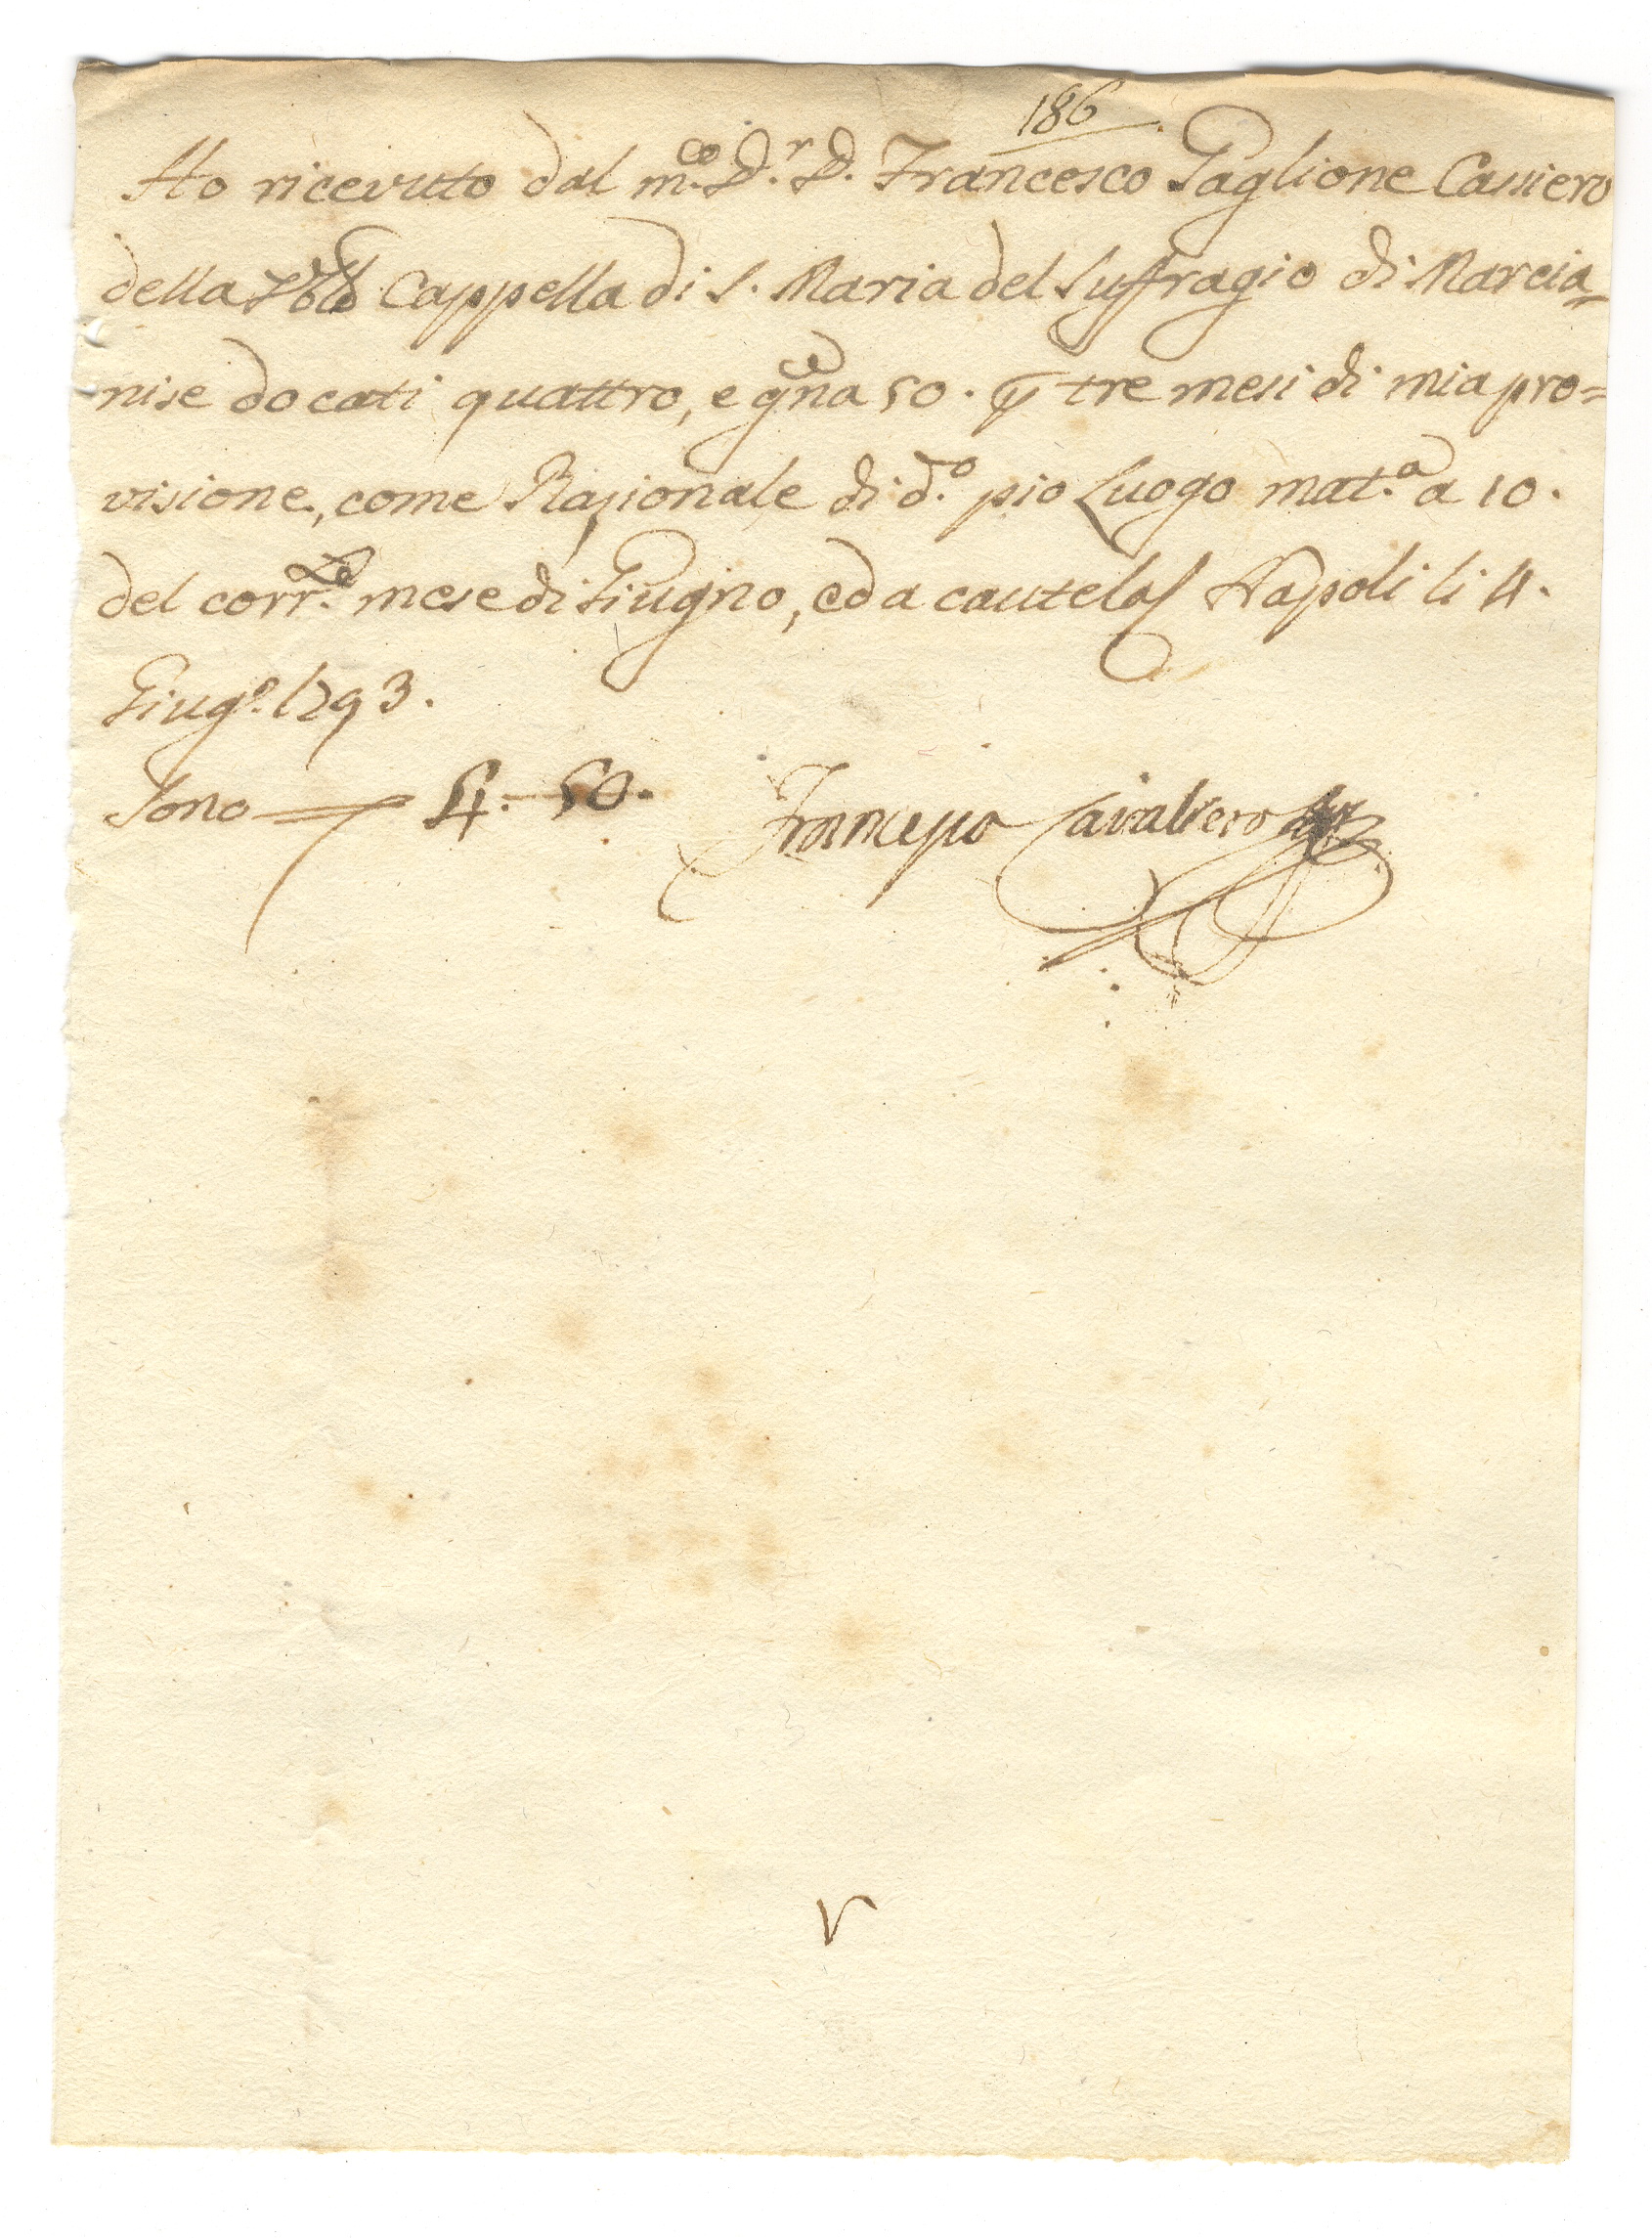 186
Ho ricevuto dal m.co D.r D. Francesco Paglione Cassiero
della Cappella di S. Maria del Suffragio di Marcia=
nise docati quattro, e g.na 50. p tre mesi di mia pro=
visione, come Razionale di d.o pio Luogo mat.a a 10.
del corr.te mese di Giugno, ed a cautela Napoli li 4.
Giug.o 1793.
Sono 4.-50. Francesco Cavaliero
V